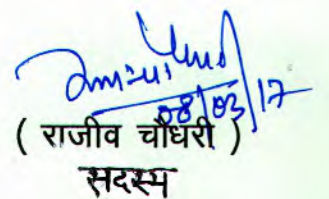 08/03/17
( राजीव चौधरी )
सदस्य